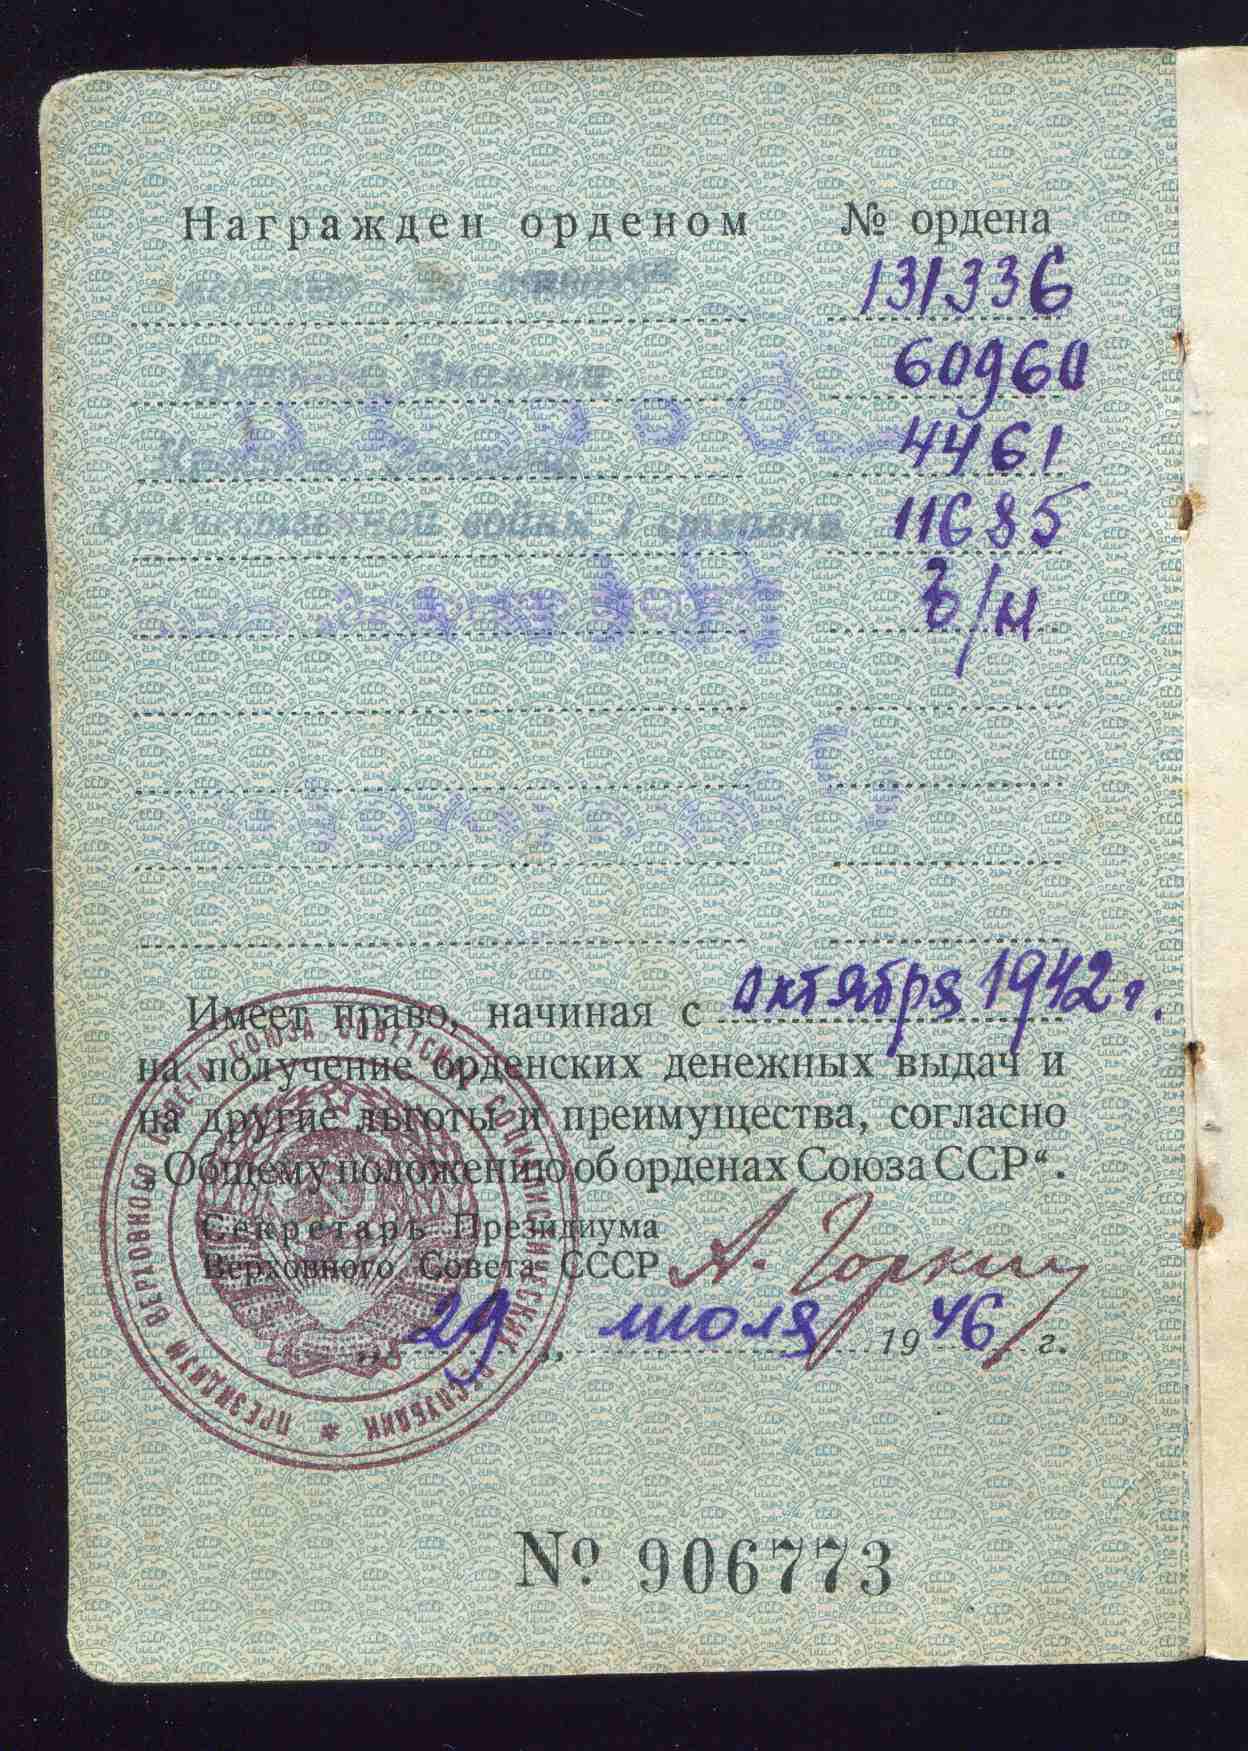 Награжден орденом № ордена
131336
Красного Знамени 60960
4461
Отечественной войны 1 степени 11685
б/н
Имеет право, начиная с октября 1942 г.
на получение орденских денежных выдач и
на другие льготы и преимущества, согласно
„Общему положению об орденах Союза ССР“.
Секретарь Президиума
Верховного Совета СССР А. Горкин
„29„ июля 1946 г.
ПРЕЗИДИУМ ВЕРХОВНОГО СОВЕТА СОЮЗА СОВЕТСКИХ СОЦИАЛИСТИЧЕСКИХ РЕСПУБЛИК *
№ 906773